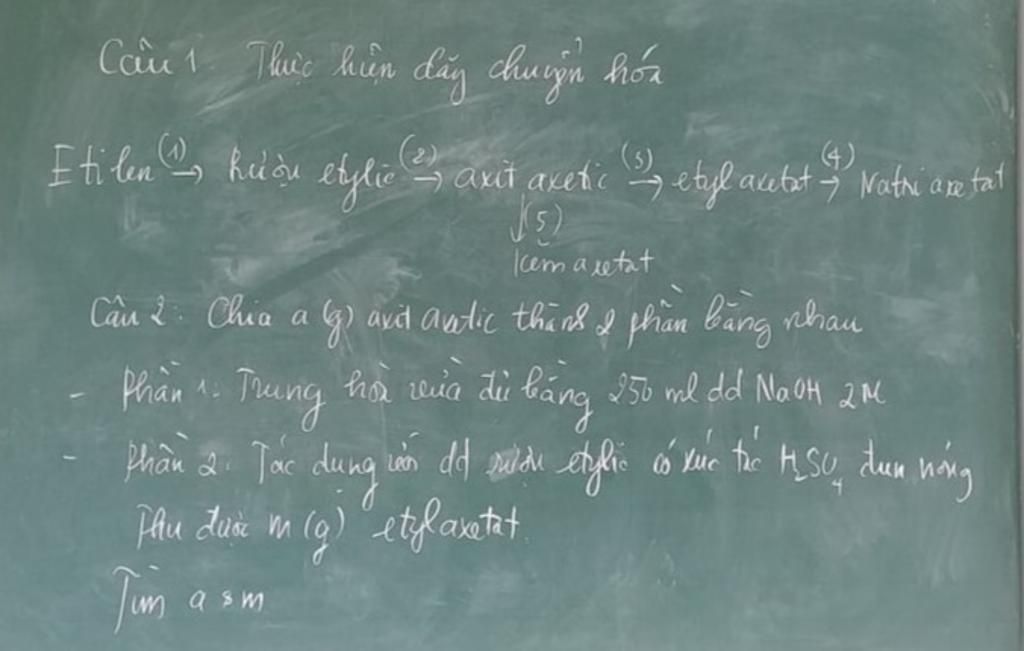 Câu 1. Thực hiện dãy chuyển hóa
Etilen (1)→ rượu etylic (2)→ axit axetic (3)→ etyl axetat (4)→ Natri axetat
↓(5)
Kẽm axetat
Câu 2: Chia a (g) axit axetic thành 2 phần bằng nhau
- Phần 1: Trung hoà vừa đủ bằng 250 ml dd NaOH 2M
- Phần 2: Tác dụng với dd rượu etylic có xúc tác H₂SO₄ đun nóng
Thu được m (g) etyl axetat.
Tìm a & m